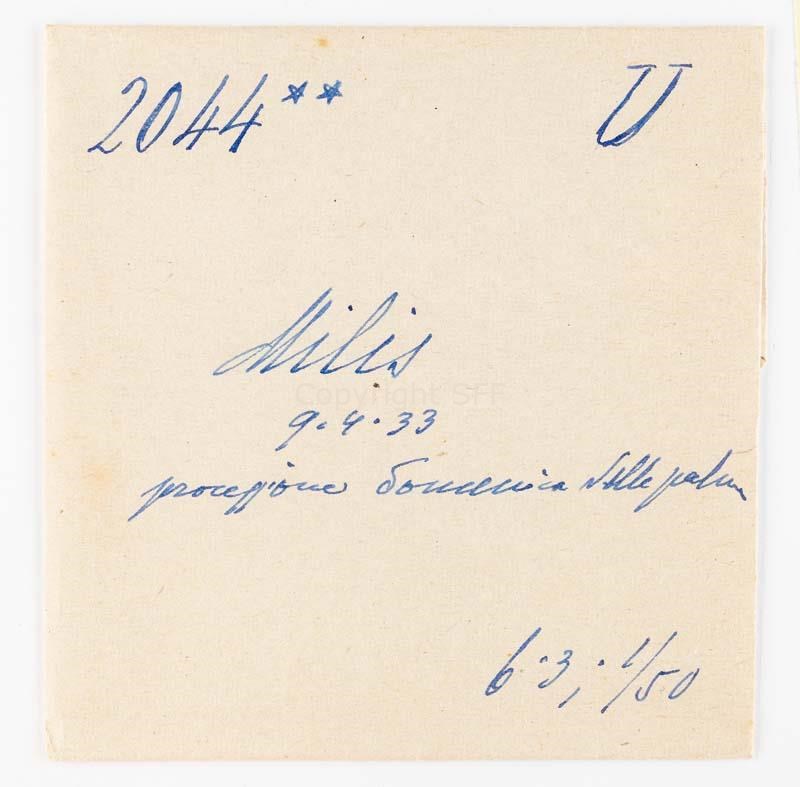 2044** U
Milis
Copyright SFF
9.4.33
processione Domenica delle palme
6.3, 1/50